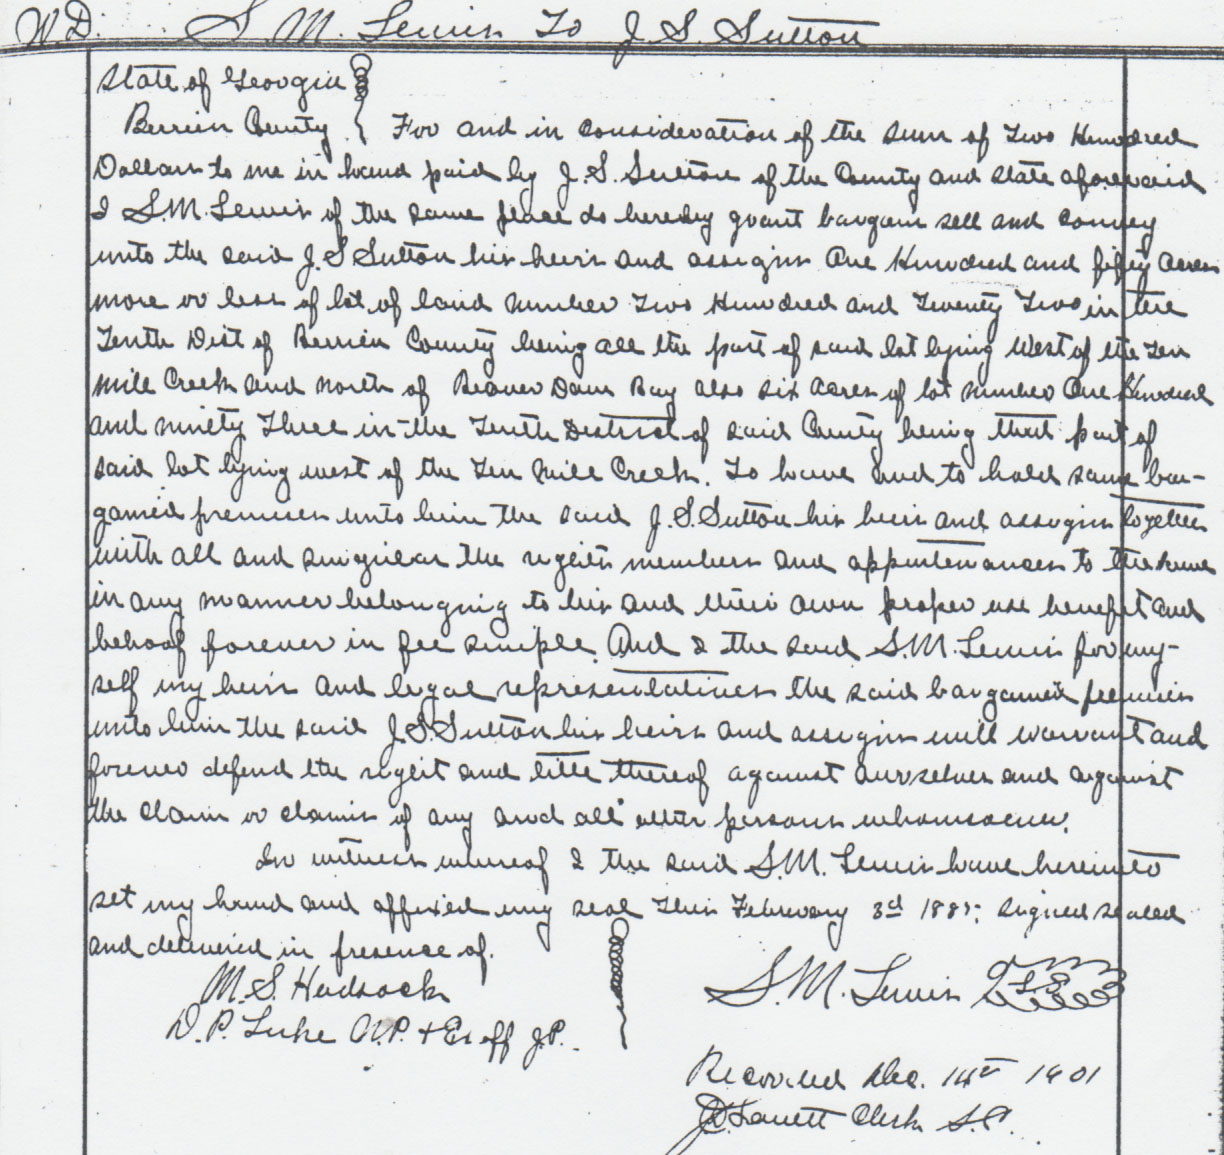 WD. S. M. Lewis To J S. Sutton
State of Georgia
Berrien County For and in consideration of the sum of Two Hundred
Dollars to me in hand paid by J. S. Sutton of the County and State aforesaid
I S.M. Lewis of the same place do hereby grant bargain sell and convey
unto the said J. S Sutton his heirs and assigns One Hundred and fifty acres
more or less of lot of land number Two Hundred and Twenty Two in the
Tenth Dist of Berrien County being all the part of said lot lying West of the Ten
Mile Creek and North of Beaver Dam Bay also six acres of lot number One Hundred
and ninety Three in the Tenth District of said County being that part of
said lot lying west of the Ten Mile Creek. To have and to hold same bar-
gained premises unto him the said J. S. Sutton his heirs and assigns together
with all and singular the rights members and appurtenances to the same
in any manner belonging to his and their own proper use benefit and
behoof forever in fee simple. And I the said S.M. Lewis for my-
self my heirs and legal representatives the said bargained premises
unto him the said J. S. Sutton his heirs and assigns will warrant and
forever defend the right and title thereof against ourselves and against
the claim or claims of any and all other persons whomsoever.
In witness whereof I the said S.M. Lewis have hereunto
set my hand and affixed my seal This February 3rd signed sealed
and delivered in presence of.
M. S. S.M. Lewis L.S.
D. P. Luke N.P. + Ex off J.P.
Recorded Dec. 14th 1901
Clerk S.C.